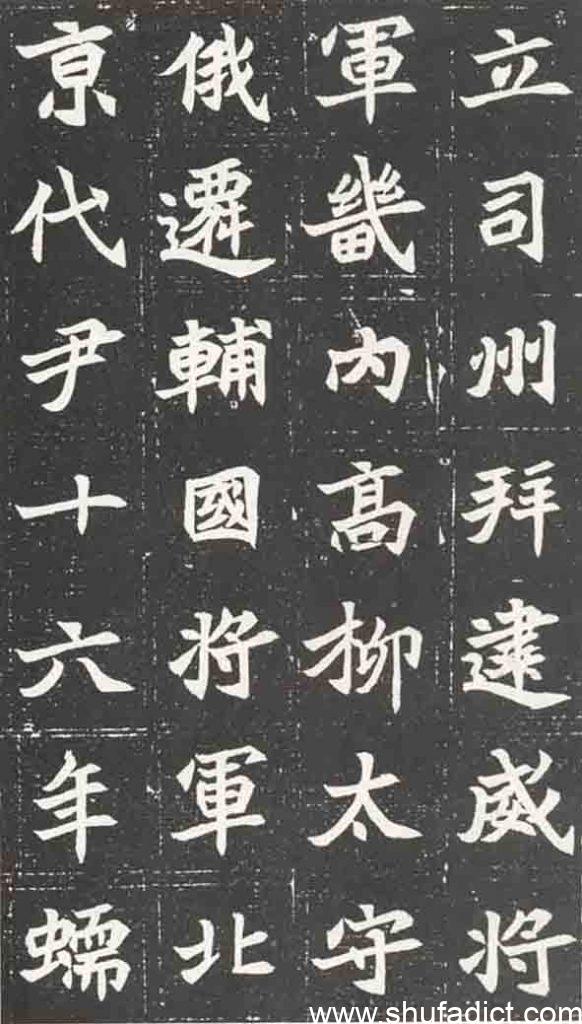 立司州拜建威将
軍畿内髙柳太守
俄遷輔國将軍北
亰代尹十六年蠕
www.shufadict.com